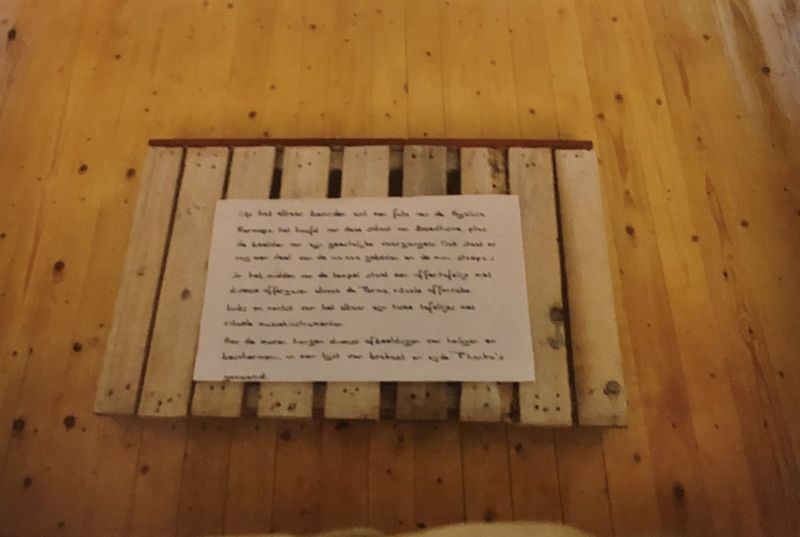 Op het altaar bevinden zich een foto van de Gyalwa
Karmapa, het hoofd van deze school van Boeddhisme, plus
de beelden van zijn geestelijke voorgangers. Ook staat er
nog een deel van de gebeden en de mini stoepa's
In het midden van de tempel staat een offertafeltje met
diverse offergaven alsook de Torma, rituele offercake.
Links en rechts van het altaar zijn twee tafeltjes met
rituele muziekinstrumenten.
Aan de muren hangen diverse afbeeldingen van heiligen en
beschermers, in een lijst van brokaat en zijde Thanka's
genaamd.